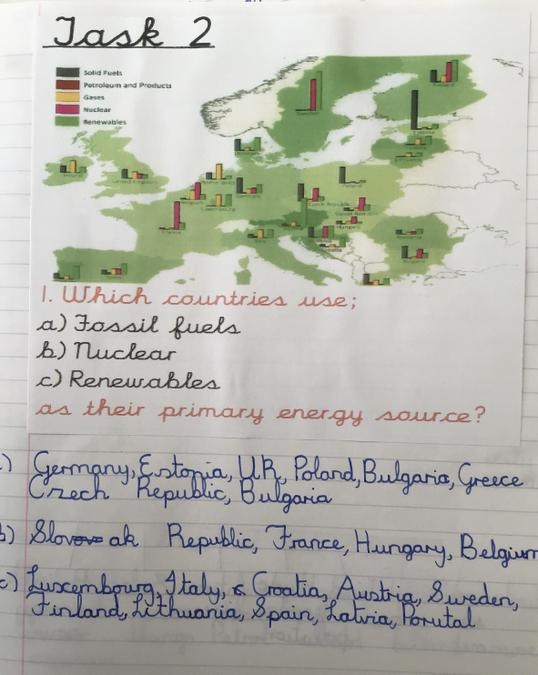 Task 2
Solid Fuels
Petroleum and Products
Gases
Nuclear
Renewables
1. Which countries use;
a) Fossil fuels
b) Nuclear
c) Renewables
as their primary energy source?
) Germany, Estonia, U.K, Poland, Bulgaria, Greece
Czech Republic, Bulgaria
) Slovak Republic, France, Hungary, Belgium
c) Luxembourg, Italy, & Croatia, Austria, Sweden,
Finland, Lithuania, Spain, Latvia, Porutal